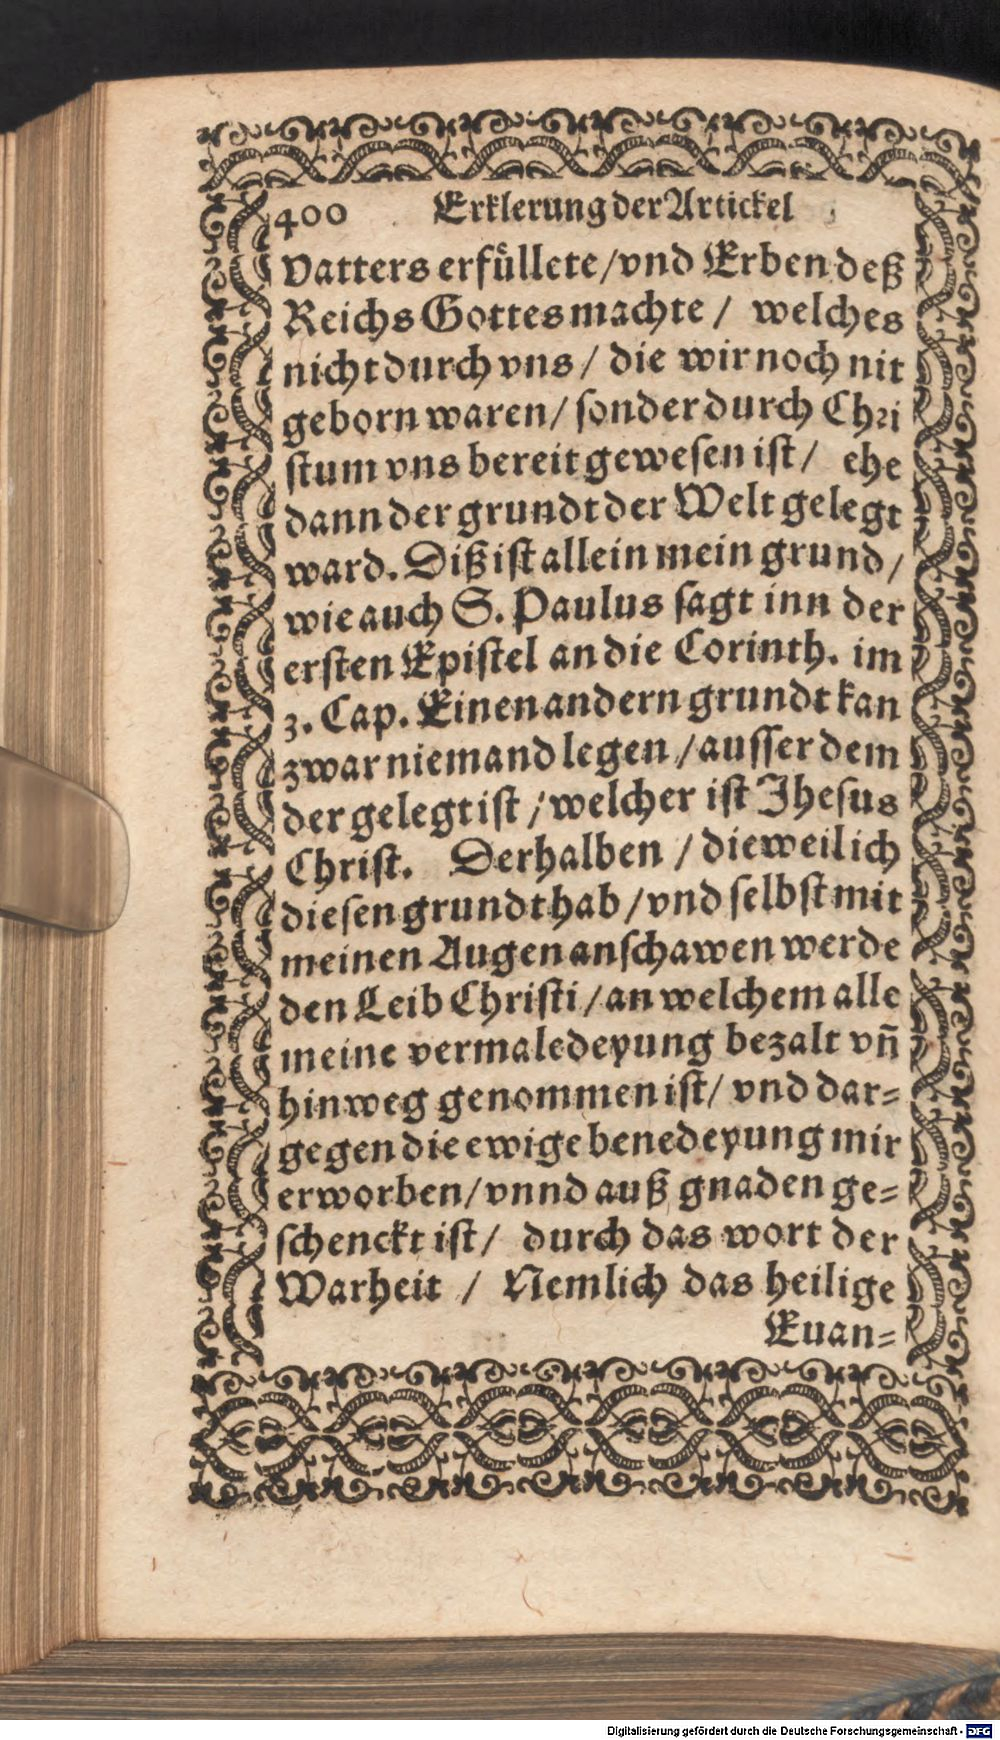 400 Erklerung der Artickel
Vatters erfuͤllete / vnd Erben deß
Reichs Gottes machte / welches
nicht durch vns / die wir noch nit
geborn waren / sonder durch Chri
stum vns bereit gewesen ist / ehe
dann der grundt der Welt gelegt
ward. Diß ist allein mein grund /
wie auch S. Paulus sagt inn der
ersten Epistel an die Corinth. im
3. Cap. Einen andern grundt kan
zwar niemand legen / ausser dem
der gelegt ist / welcher ist Jhesus
Christ. Derhalben / dieweil ich
diesen grundt hab / vnd selbst mit
meinen Augen anschawen werde
den Leib Christi / an welchem alle
meine vermaledeyung bezalt vñ
hinweg genommen ist / vnd dar-
gegen die ewige benedeyung mir
erworben / vnnd auß gnaden ge-
schenckt ist / durch das wort der
Warheit / Nemlich das heilige
Euan-
Digitalisierung gefördert durch die Deutsche Forschungsgemeinschaft - DFG